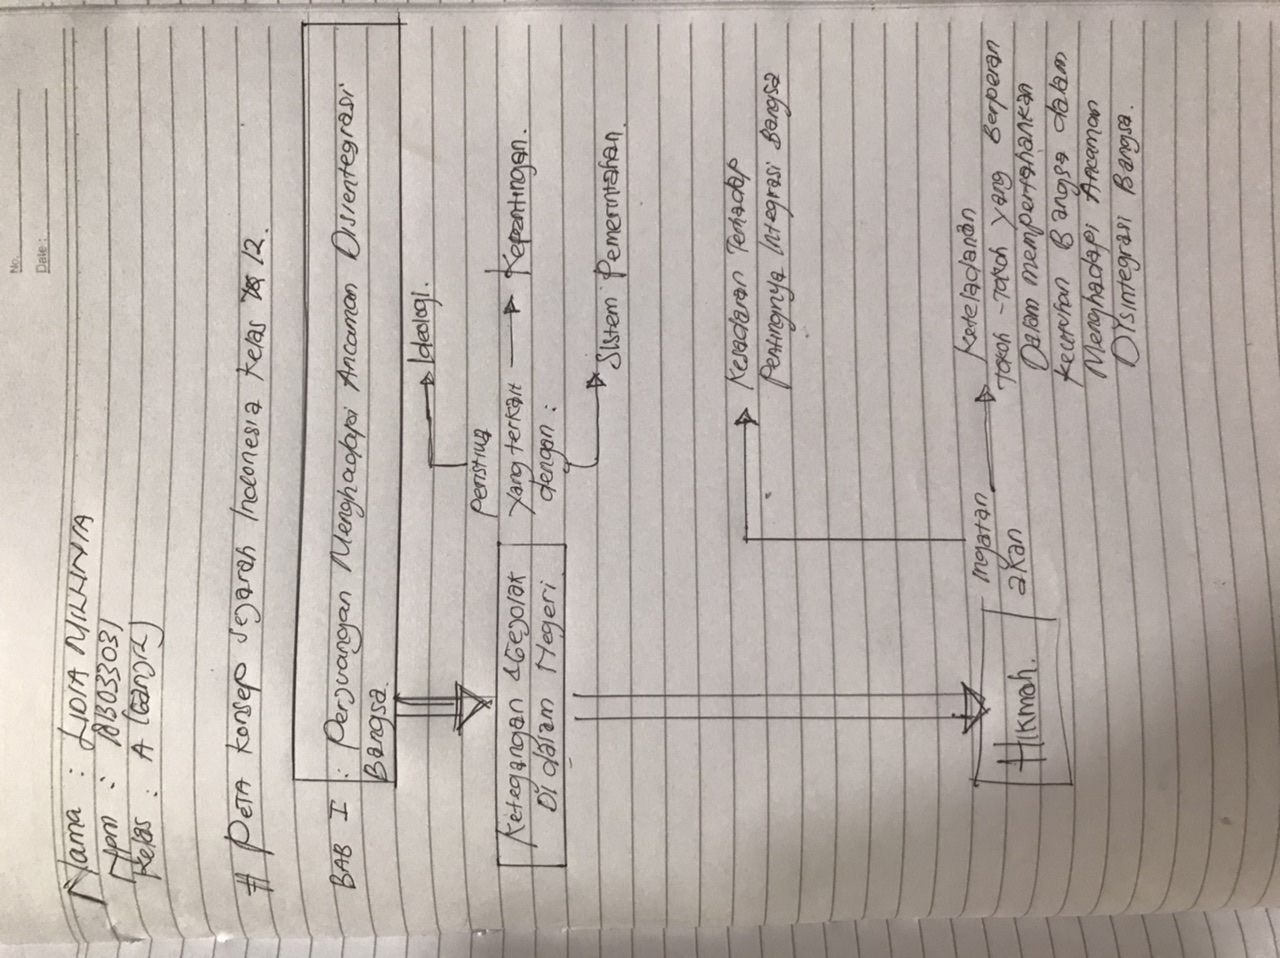 No.
Date:
Nama : LIDIA MILLINIA
Npm :
Kelas : A (Ganjil)
# Peta konsep Sejarah Indonesia kelas 12.
BAB I : Perjuangan Menghadapi Ancaman Disrentegrasi
Bangsa.
Ideologi.
Peristiwa
yang terkait
dengan :
Kepentingan.
Sistem Pemerintahan.
Ketegangan &Gejolak
Di dalam Negeri
Kesadaran Terhadap
Pentingnya Integrasi Bangsa
Hikmah.
Ingatan
akan
Keteladanan
Tokoh -Tokoh yang Berperan
Dalam mempertahankan
keutuhan Bangsa dalam
Menghadapi Ancaman
Disintegrasi Bangsa.